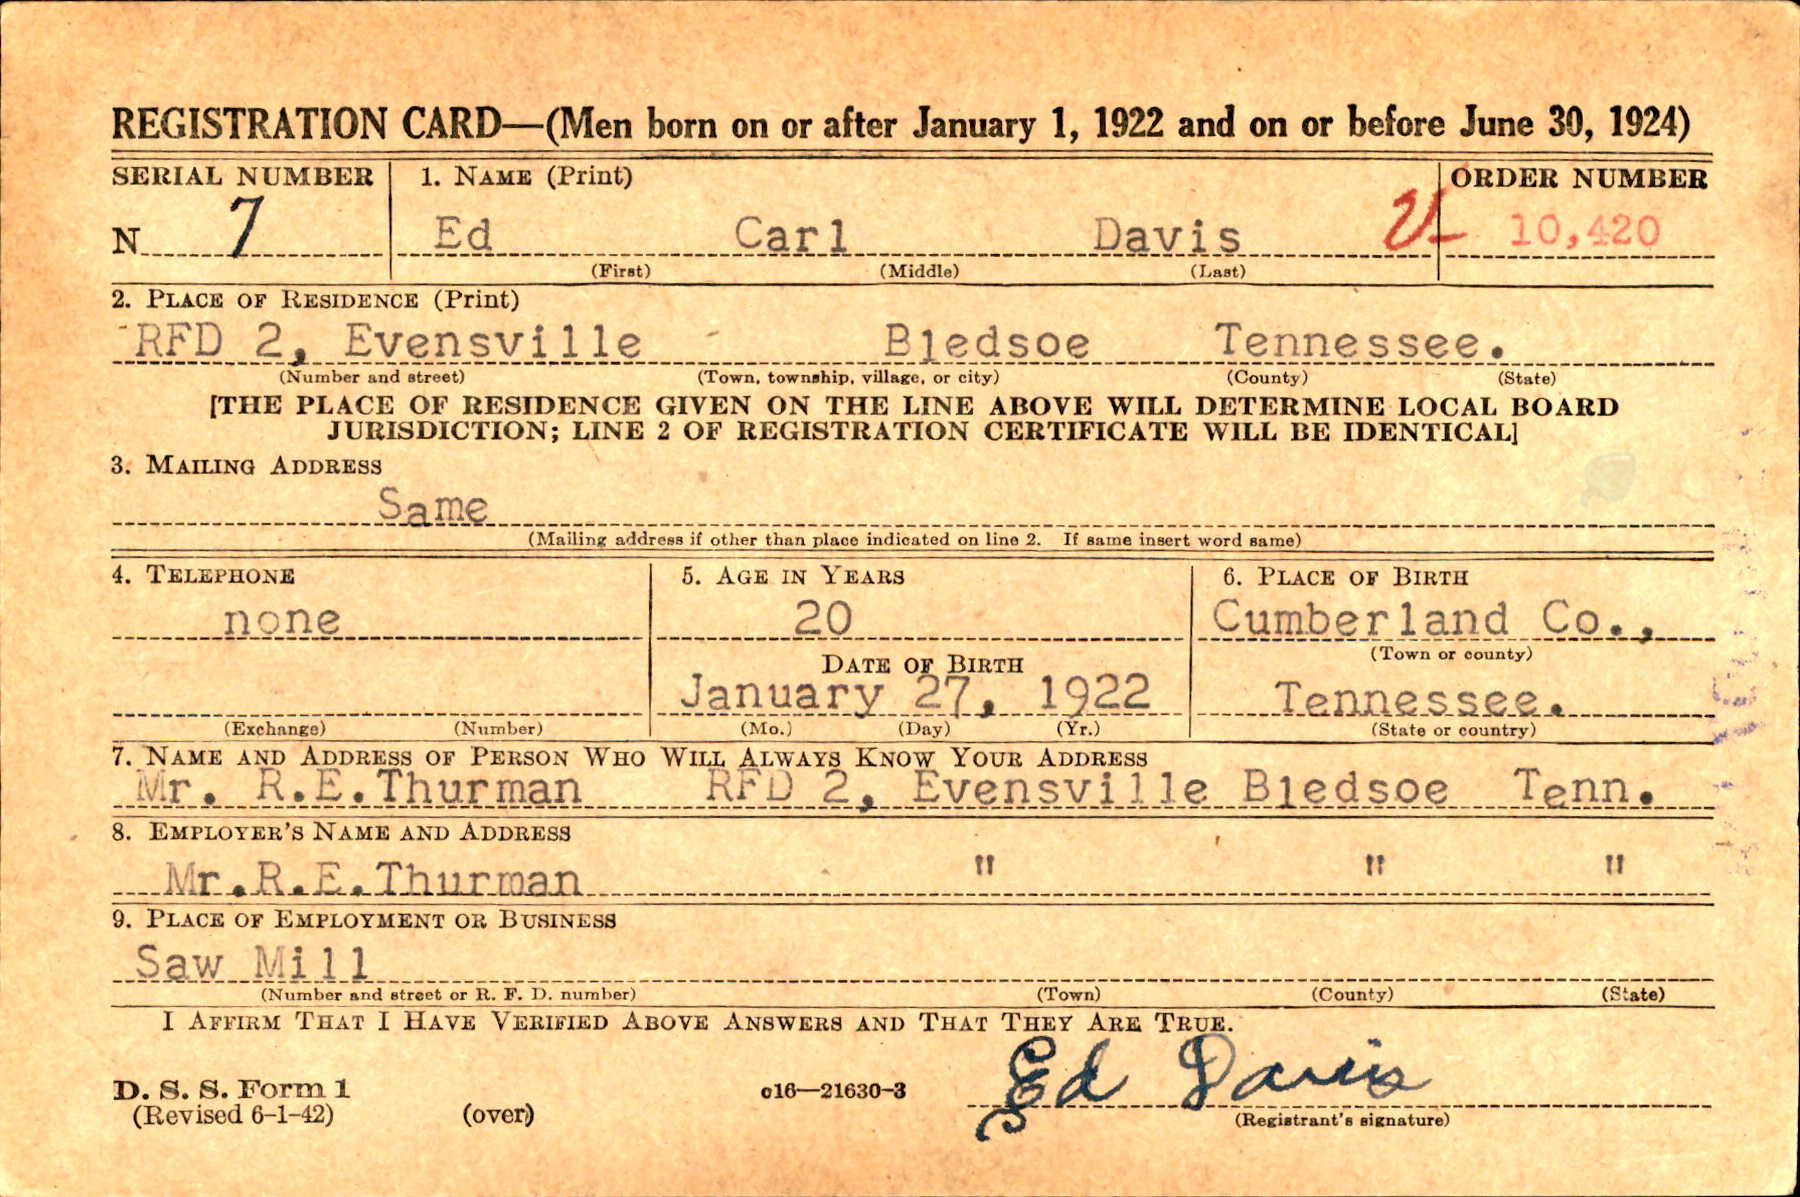 REGISTRATION CARD—(Men born on or after January 1, 1922 and on or before June 30, 1924)
SERIAL NUMBER 1. NAME (Print) ORDER NUMBER
N 7 Ed Carl Davis 10,420
(First) (Middle) (Last)
2. PLACE OF RESIDENCE (Print)
RFD 2, Evensville Bledsoe Tennessee.
(Number and street) (Town, township, village, or city) (County) (State)
[THE PLACE OF RESIDENCE GIVEN ON THE LINE ABOVE WILL DETERMINE LOCAL BOARD
JURISDICTION; LINE 2 OF REGISTRATION CERTIFICATE WILL BE IDENTICAL]
3. MAILING ADDRESS
Same
(Mailing address if other than place indicated on line 2. If same insert word same)
4. TELEPHONE 5. AGE IN YEARS 6. PLACE OF BIRTH
none 20 Cumberland Co.,
DATE OF BIRTH (Town or county)
January 27, 1922 Tennessee.
(Exchange) (Number) (Mo.) (Day) (Yr.) (State or country)
7. NAME AND ADDRESS OF PERSON WHO WILL ALWAYS KNOW YOUR ADDRESS
Mr. R.E.Thurman RFD 2, Evensville Bledsoe Tenn.
8. EMPLOYER'S NAME AND ADDRESS
Mr.R.E.Thurman " " "
9. PLACE OF EMPLOYMENT OR BUSINESS
Saw Mill
(Number and street or R. F. D. number) (Town) (County) (State)
I AFFIRM THAT I HAVE VERIFIED ABOVE ANSWERS AND THAT THEY ARE TRUE.
Ed Davis
D. S. S. Form 1 c16—21630-3
(Revised 6-1-42) (over) (Registrant's signature)